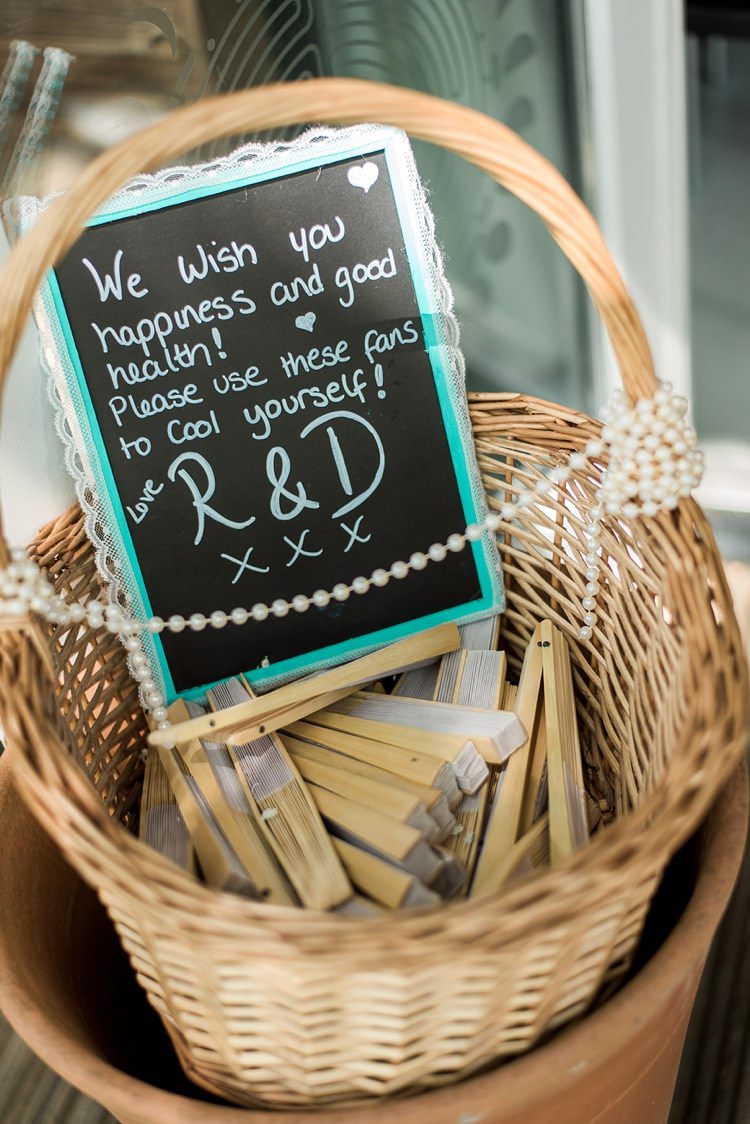 We Wish you
happiness and good
health!
Please use these fans
to Cool yourself!
Love R & D
x x x